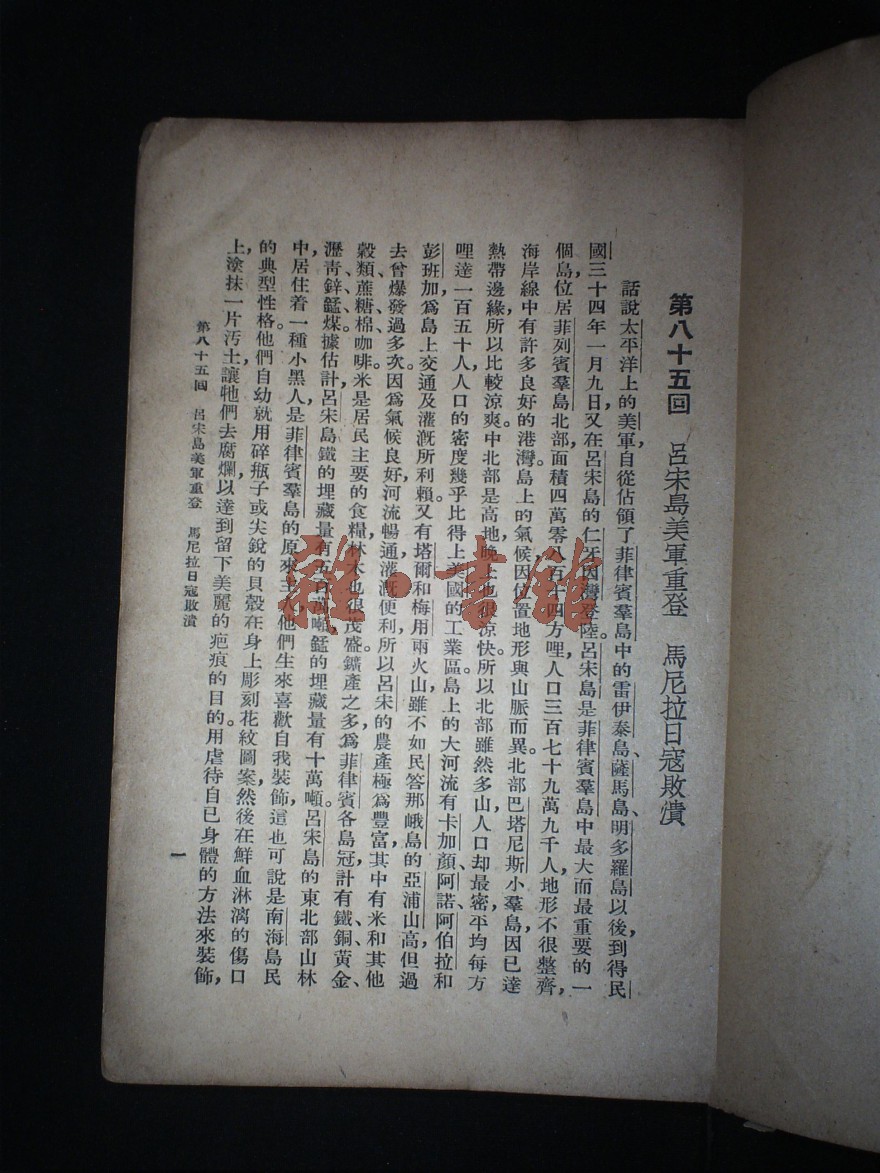 第八十五回 呂宋島美軍重登 馬尼拉日寇敗潰
話說太平洋上的美軍，自從佔領了菲律賓羣島中的雷伊泰島、薩馬島、明多羅島以後，到得民
國三十四年一月九日，又在呂宋島的仁牙因灣登陸。呂宋島是菲律賓羣島中最大而最重要的一
個島，位居菲列賓羣島北部，面積四萬零八百十四方哩，人口三百七十九萬九千人，地形不很整齊，
海岸線中有許多良好的港灣。島上的氣候因位置地形與山脈而異。北部巴塔尼斯小羣島，因已達
熱帶邊緣，所以比較涼爽。中北部是高地，晚上也很涼快。所以北部雖然多山，人口却最密，平均每方
哩達一百五十人，人口的密度幾乎比得上美國的工業區。島上的大河流有卡加顏、阿諾、阿伯拉和
彭班加，爲島上交通及灌溉所利賴。又有塔爾和梅用兩火山，雖不如民答那峨島的亞浦山高，但過
去曾爆發過多次。因爲氣候良好，河流暢通，灌溉便利，所以呂宋的農產極爲豐富，其中有米和其他
穀類、蔗糖、棉、咖啡。米是居民主要的食糧。林木也很茂盛。鑛產之多，爲菲律賓各島冠，計有鐵、銅、黃金、
瀝青、鋅、錳、煤。據估計，呂宋島鐵的埋藏量有五百萬噸，錳的埋藏量有十萬噸。呂宋島的東北部山林
中，居住着一種小黑人，是菲律賓羣島的原來主人。他們生來喜歡自我裝飾，這也可說是南海島民
的典型性格。他們自幼就用碎瓶子或尖銳的貝殼在身上彫刻花紋圖案，然後在鮮血淋漓的傷口
上，塗抹一片汚土，讓牠們去腐爛，以達到留下美麗的疤痕的目的。用虐待自已身體的方法來裝飾，
第八十五回 呂宋島美軍重登 馬尼拉日寇敗潰
一
雜·書館